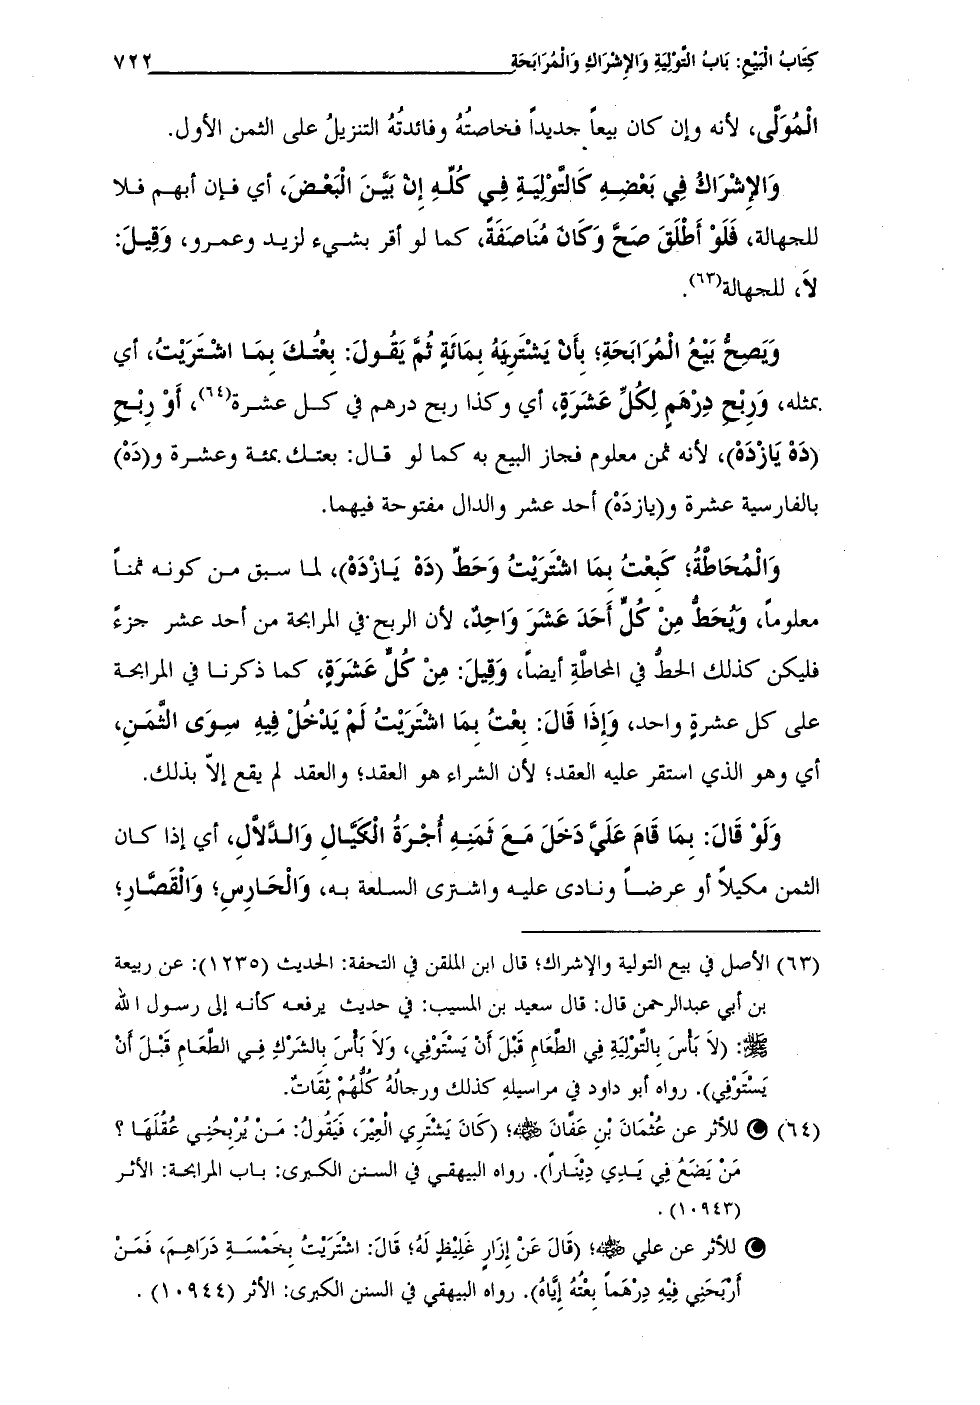 كِتَابُ الْبَيْعِ: بَابُ التَّوْلِيَةِ وَالإِشْرَاكِ وَالْمُرَابَحَةِ ٧٢٢
الْمُوَلَّى، لأنه وإن كان بيعاً جديداً فخاصتُهُ وفائدتُهُ التنزيلُ على الثمن الأول.
وَالإِشْرَاكُ فِي بَعْضِهِ كَالتَّوْلِيَةِ فِي كُلِّهِ إِنْ بَيَّنَ الْبَعْضَ، أي فإن أبهم فلا
للجهالة، فَلَوْ أَطْلَقَ صَحَّ وَكَانَ مُنَاصَفَةً، كما لو أقر بشيء لزيد وعمرو، وَقِيلَ:
لاَ، للجهالة(٦٣).
وَيَصِحُّ بَيْعُ الْمُرَابَحَةِ؛ بِأَنْ يَشْتَرِيَهُ بِمَائَةٍ ثُمَّ يَقُولَ: بِعْتُكَ بِمَا اشْتَرَيْتُ، أي
بمثله، وَرِبْحِ دِرْهَمٍ لِكُلِّ عَشَرَةٍ، أي وكذا ربح درهم في كل عشرة(٦٤)، أَوْ رِبْحِ
(دَهْ يَازْدَهْ)، لأنه ثمن معلوم فجاز البيع به كما لو قال: بعتك بمئة وعشرة و(دَهْ)
بالفارسية عشرة و(يازدَهْ) أحد عشر والدال مفتوحة فيهما.
وَالْمُحَاطَّةُ؛ كَبِعْتُ بِمَا اشْتَرَيْتُ وَحَطِّ (دَهْ يَازْدَهْ)، لما سبق من كونه ثمناً
معلوماً، وَيُحَطُّ مِنْ كُلِّ أَحَدَ عَشَرَ وَاحِدٌ، لأن الربح في المرابحة من أحد عشر جزءً
فليكن كذلك الحطُّ في المحاطَّةِ أيضاً، وَقِيلَ: مِنْ كُلِّ عَشَرَةٍ، كما ذكرنا في المرابحة
على كل عشرةٍ واحد، وَإِذَا قَالَ: بِعْتُ بِمَا اشْتَرَيْتُ لَمْ يَدْخُلْ فِيهِ سِوَى الثَّمَنِ،
أي وهو الذي استقر عليه العقد؛ لأن الشراء هو العقد؛ والعقد لم يقع إلاّ بذلك.
وَلَوْ قَالَ: بِمَا قَامَ عَلَيَّ دَخَلَ مَعَ ثَمَنِهِ أُجْرَةُ الْكَيَّالِ وَالدَّلاَّلِ، أي إذا كان
الثمن مكيلاً أو عرضاً ونادى عليه واشترى السلعة به، وَالْحَارِسِ؛ وَالْقَصَّارِ؛
(٦٣) الأصل في بيع التولية والإشراك؛ قال ابن الملقن في التحفة: الحديث (١٢٣٥): عن ربيعة
بن أبي عبدالرحمن قال: قال سعيد بن المسيب: في حديث يرفعه كأنه إلى رسول الله
ﷺ: (لاَ بَأْسَ بِالتَّوْلِيَةِ فِي الطَّعَامِ قَبْلَ أَنْ يَسْتَوْفِي، وَلاَ بَأْسَ بِالشَّرْكِ فِي الطَّعَامِ قَبْلَ أَنْ
يَسْتَوْفِي). رواه أبو داود في مراسيلهِ كذلك ورجالُهُ كُلُّهُمْ ثِقَاتٌ.
(٦٤) للأثر عن عُثْمَانَ بْنِ عَفَّانَ ؛ (كَانَ يَشْتَرِي الْعِيْرَ، فَيَقُولُ: مَنْ يُرْبِحُنِي عُقُلَهَا ؟
مَنْ يَضَعُ فِي يَدِي دِيْنَاراً). رواه البيهقي في السنن الكبرى: باب المرابحة: الأثر
(١٠٩٤٣).
للأثر عن علي ؛ (قَالَ عَنْ إِزَارٍ غَلِيْظٍ لَهُ؛ قَالَ: اشْتَرَيْتُ بِخَمْسَةِ دَرَاهِمَ، فَمَنْ
أَرْبَحَنِي فِيْهِ دِرْهَماً بِعْتُهُ إِيَّاهُ). رواه البيهقي في السنن الكبرى: الأثر (١٠٩٤٤).